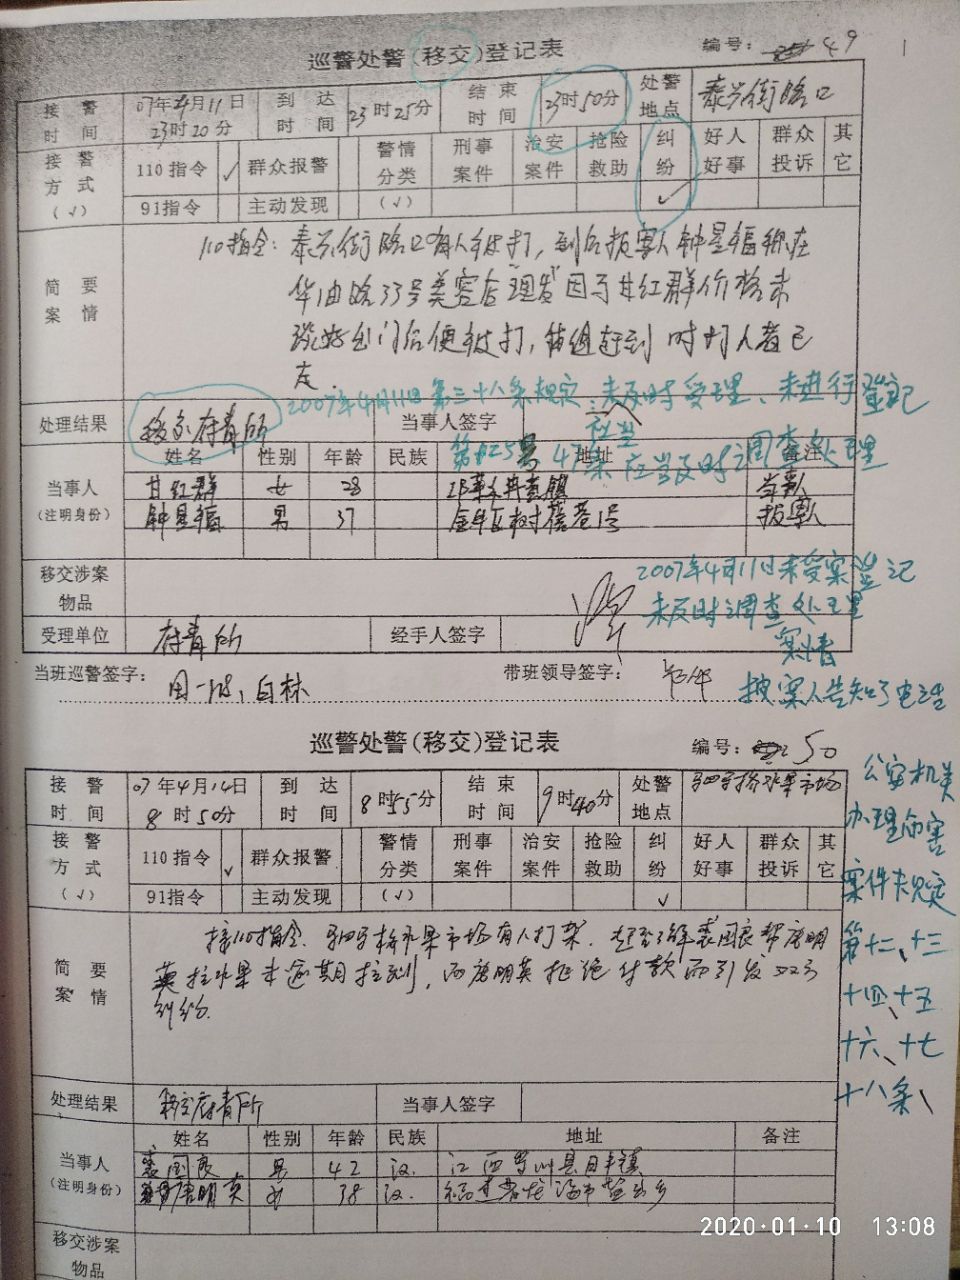 巡警处警(移交)登记表
编号: 49
接警时间 07年4月11日 23时20分 到达时间 23时25分 结束时间 23时50分 处警地点 泰兴街路口
接警方式(√) 110指令 √ 群众报警 警情分类(√) 刑事案件 治安案件 抢险救助 纠纷 √ 好人好事 群众投诉 其它
91指令 主动发现
简要案情
110指令:泰兴街路口有人被打,到后报案人钟星福称在
华油路33号美容店理发因与甘红群价格未
谈好出门后便被打,警组赶到时打人者已
走.
2007年4月11日第三十八条规定:未及时受理、未进行登记
处理结果 移交府青所 当事人签字
47条应当及时调查处理
当事人(注明身份) 姓名 性别 年龄 民族 地址 备注
甘红群 女 28 当事人
钟星福 男 37 金牛区 报案人
移交涉案物品
2007年4月11日未受案登记
未及时调查处理
案情
受理单位 府青所 经手人签字
当班巡警签字: 白林 带班领导签字:
报案人告知了
巡警处警(移交)登记表
编号: 50
接警时间 07年4月14日 8时50分 到达时间 8时55分 结束时间 9时40分 处警地点 驷马桥水果市场
接警方式(√) 110指令 √ 群众报警 警情分类(√) 刑事案件 治安案件 抢险救助 纠纷 √ 好人好事 群众投诉 其它
91指令 主动发现
简要案情
接110指令.驷马桥水果市场有人打架.赶到了解袁国良帮唐明
英拉水果未逾期拉到,而唐明英拒绝付款而引发双方
纠纷.
公安机关
办理伤害
案件规定
第十二、十三
十四、十五
十六、十七
十八条、
处理结果 移交府青所 当事人签字
当事人(注明身份) 姓名 性别 年龄 民族 地址 备注
袁国良 男 42 汉.
唐明英 女 38 汉.
移交涉案物品
2020·01·10 13:08